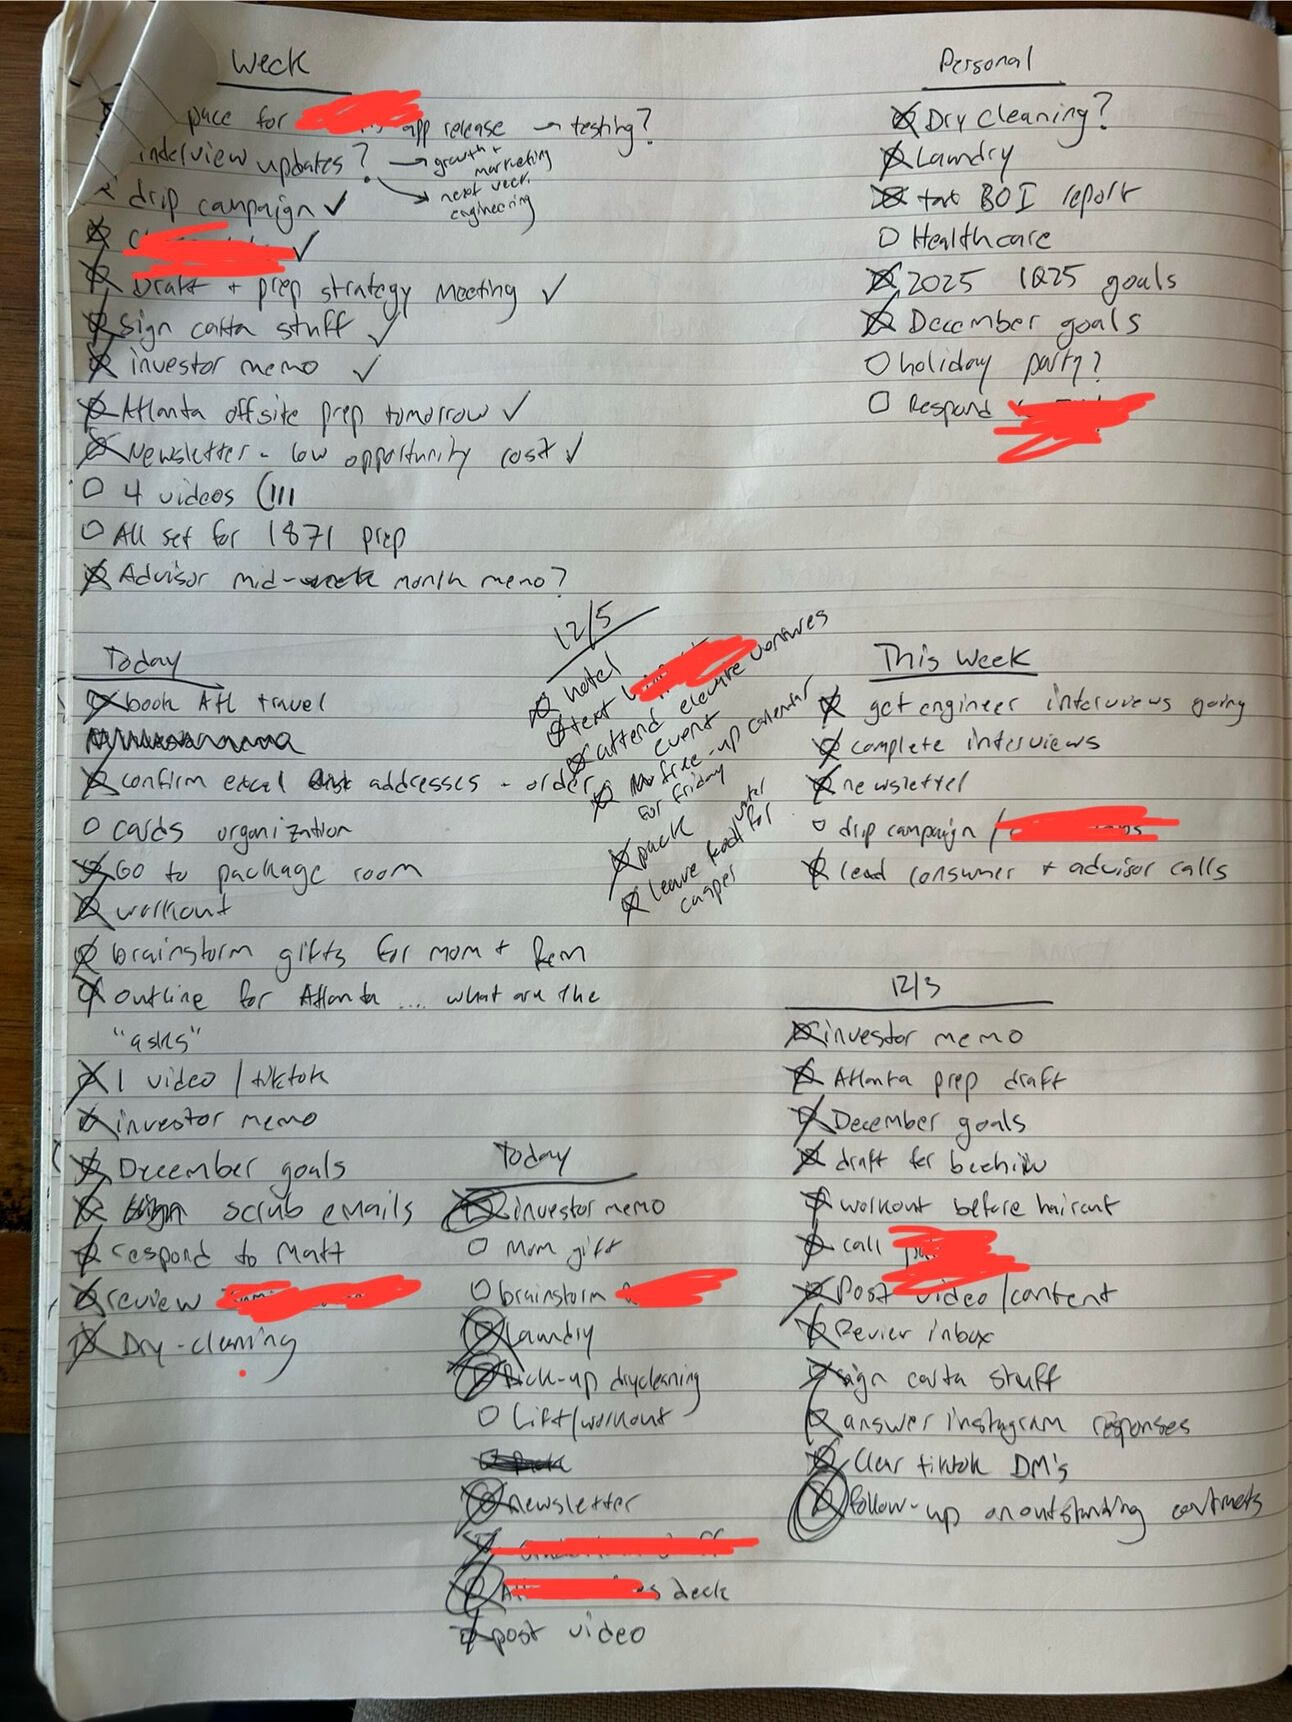 Week
pace for app release → testing?
interview updates? → growth + marketing
→ next week engineering
drip campaign ✓
✓
Draft + prep strategy meeting ✓
sign carta stuff ✓
investor memo ✓
Atlanta offsite prep tomorrow ✓
Newsletter - low opportunity cost ✓
4 videos (III
All set for 1871 prep
Advisor mid- month memo?
Personal
Dry cleaning?
Laundry
BOI report
Healthcare
2025 1Q25 goals
December goals
holiday party?
Respond
Today
book Atl travel
confirm excel addresses - order
cards organization
Go to package room
workout
brainstorm gifts for mom +
outline for Atlanta ... what are the
"asks"
1 video / tiktok
investor memo
December goals
scrub emails
respond to Matt
review
Dry-cleaning
12/5
hotel
text
attend elevate ventures
event
free-up calendar
for Friday
pack
leave food/water for
casper
This Week
get engineer interviews going
complete interviews
newsletter
drip campaign /
lead consumer + advisor calls
12/3
investor memo
Atlanta prep draft
December goals
draft for beehiiv
workout before haircut
call
Post video/content
Review inbox
sign carta stuff
answer instagram responses
Clear tiktok DM's
follow-up on outstanding contracts
Today
investor memo
Mom gift
brainstorm
Laundry
Pick-up drycleaning
Lift/workout
newsletter
deck
post video